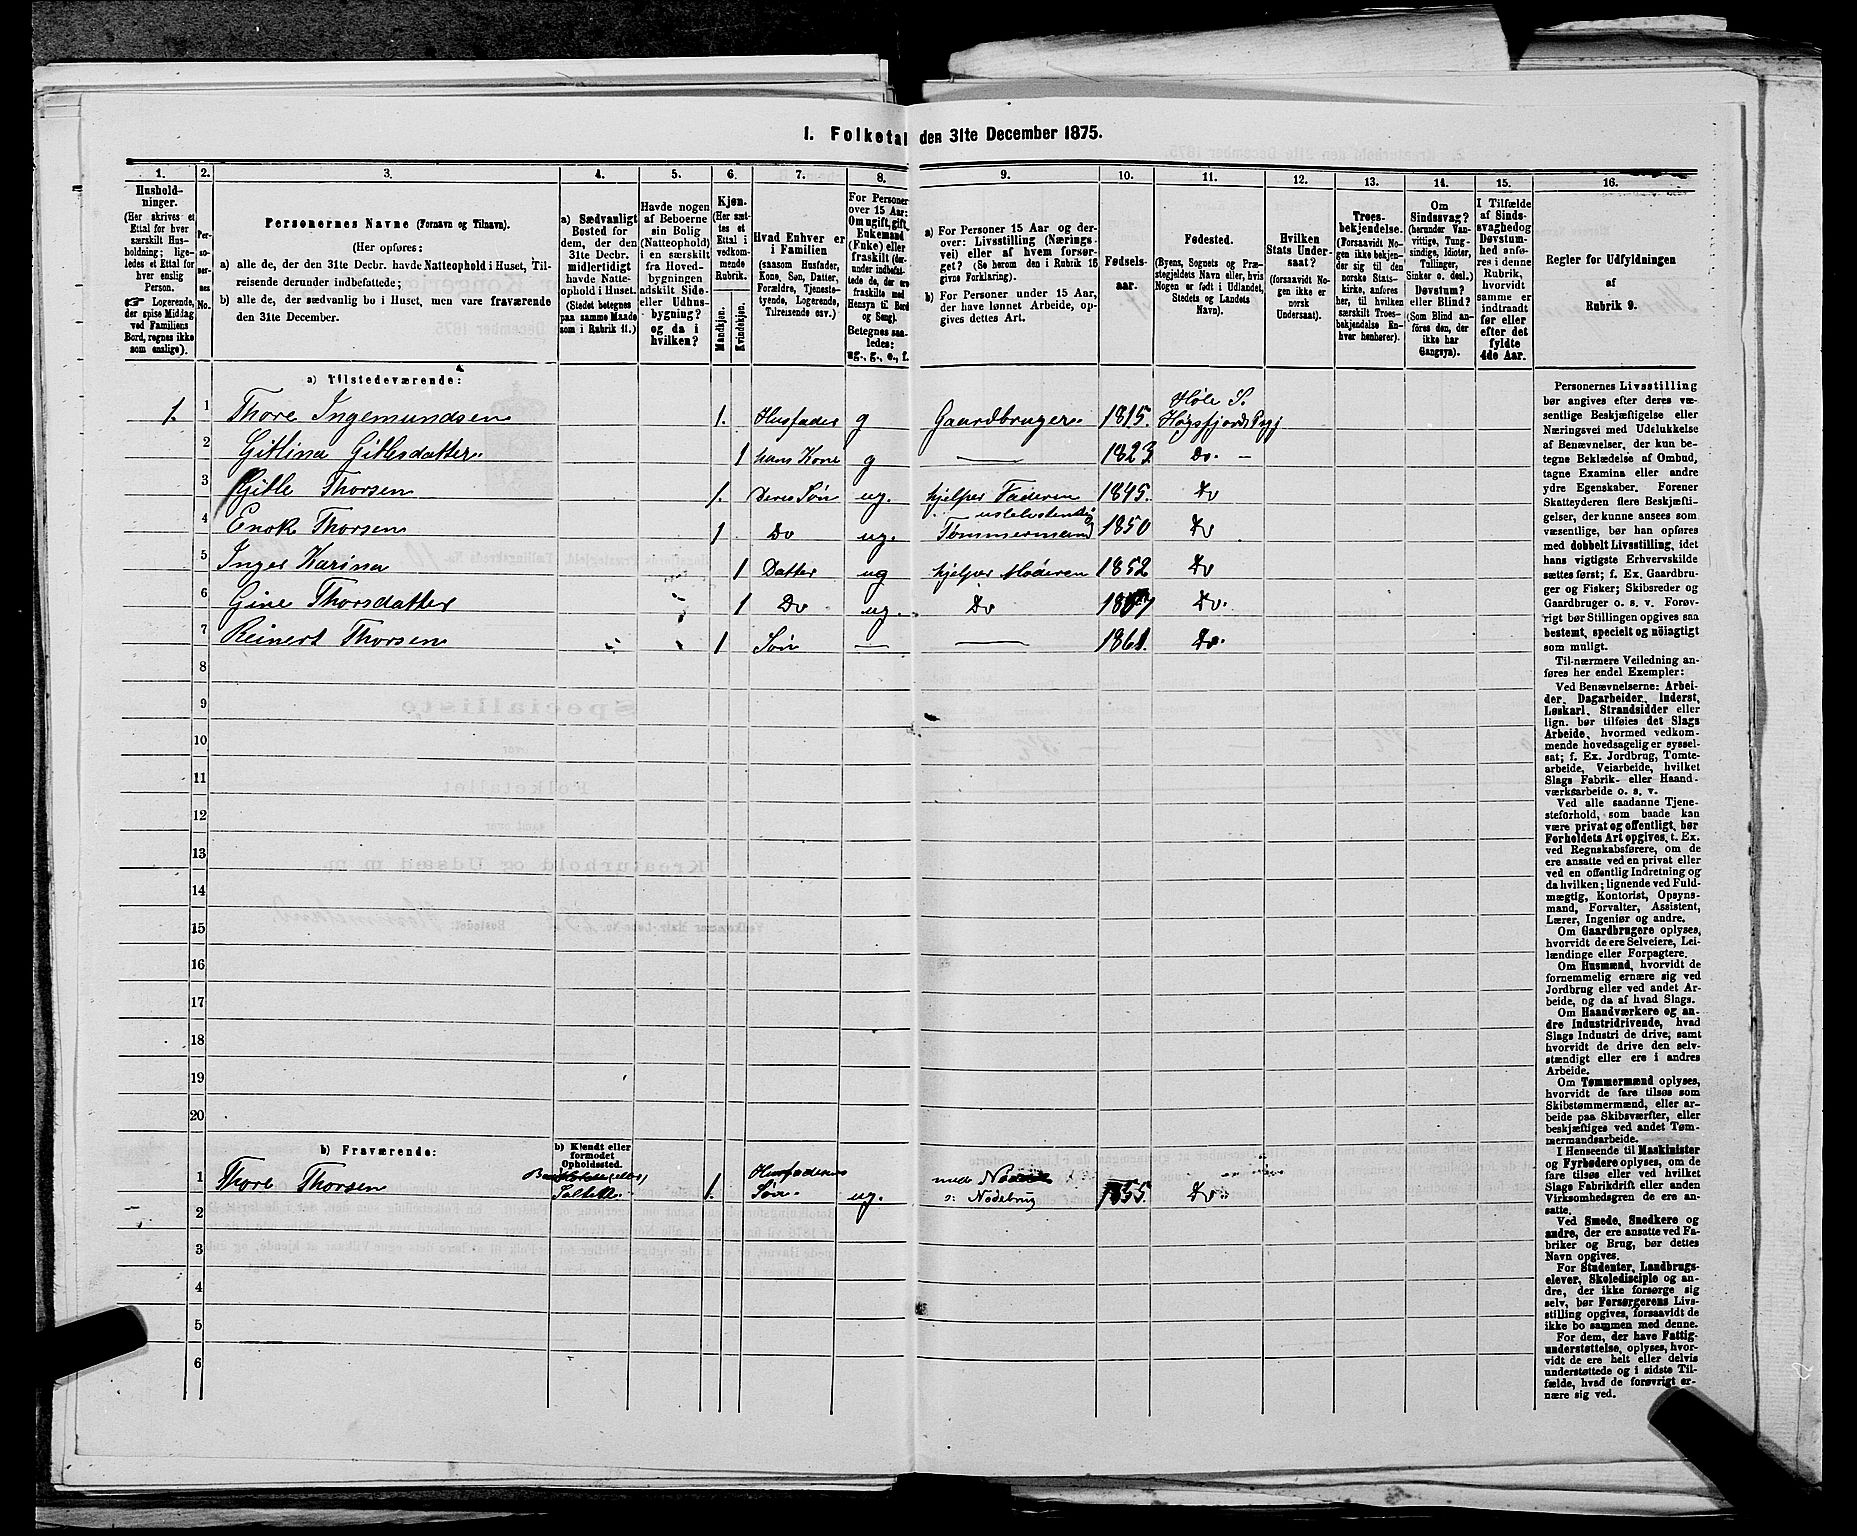 1. Folketal den 31te December 1875.
1.
Hushold-
ninger.
(Her skrives et
Ettal for hver
særskilt Hus-
holdning; lige-
ledes et Ettal for
hver enslig
Person.
Logerende,
der spise Middag
ved Familiens
Bord, regnes ikke
som enslige).
2.
Per-
so-
ner-
nes
No.
3.
Personernes Navne (Fornavn og Tilnavn).
(Her opføres:
a) alle de, der den 31te Decbr. havde Natteophold i Huset, Til-
reisende derunder indbefattede;
b) alle de, der sædvanlig bo i Huset, men vare fraværende
den 31te December.
4.
a) Sædvanligt
Bosted for
dem, der den
31te Decbr.
midlertidigt
havde Natte-
ophold i Huset.
(Stedet betegnes
paa samme Maade
som i Rubrik 11.)
5.
Havde nogen
af Beboerne
sin Bolig
(Natteophold)
i en særskilt
fra Hoved-
bygningen
adskilt Side-
eller Udhus-
bygning?
og da i
hvilken?
6.
Kjøn.
(Her sæt-
tes et
Ettal i
vedkom-
mende
Rubrik.
Mandkjøn.
Kvindekjøn.
7.
Hvad Enhver er
i Familien
(saasom Husfader,
Kone, Søn, Datter,
Forældre, Tjeneste-
tyende, Logerende,
Tilreisende osv.)
8.
For Personer
over 15 Aar:
Om ugift, gift,
Enkemand
(Enke) eller
fraskilt (der-
under indbefat-
tede de, der ere
fraskilte med
Hensyn til Bord
og Seng).
Betegnes saa-
ledes:
ug., g., e., f.
9.
a) For Personer 15 Aar og der-
over: Livsstilling (Nærings-
vei) eller af hvem forsør-
get? (Se herom den i Rubrik 16
givne Forklaring).
b) For Personer under 15 Aar,
der have lønnet Arbeide, op-
gives dettes Art.
10.
Fødsels-
aar.
11.
Fødested.
(Byens, Sognets og Præ-
stegjeldets Navn eller, hvis
Nogen er født i Udlandet,
Stedets og Landets
Navn).
12.
Hvilken
Stats Under-
saat?
(forsaavidt No-
gen ikke er
norsk
Undersaat).
13.
Troes-
bekjendelse.
(Forsaavidt No-
gen ikke bekjen-
der sig til den
norske Stats-
kirke, anføres
her, til hvilken
særskilt Troes-
bekjendelse En-
hver henhører).
14.
Om
Sindssvag?
(herunder Van-
vittige, Idioter,
Tullinger,
Sinker o. desl.)
Døvstum?
eller Blind?
(Som Blind an-
føres den, der
ikke har
Gangsyn).
15.
I Tilfælde
af Sinds-
svaghed og
Døvstum-
hed anfø-
res i denne
Rubrik,
hvorvidt
samme er
indtraadt
før eller
efter det
fyldte
4de Aar.
16.
Regler for Udfyldningen
af
Rubrik 9.
a) Tilstedeværende:
1. 1 Thore Ingemundsen 1. Husfader g Gaardbruger 1815. Høle S. Høgsfjord Pgj
2 Gitlina Gitlesdatter 1 hans Kone g — 1823. Do. —
3 Gitle Thorsen 1. Deres Søn ug. hjelper Faderen 1845. Do
4 Enok Thorsen 1 Do ug. Tømmermand 1850 Do
5 Inger Karina 1 Datter ug hjelper Moderen 1852 Do
6 Gine Thorsdatter 1 Do ug. Do Do.
7 Reinert Thorsen 1 Søn — — 1861. Do.
8
9
10
11
12
13
14
15
16
17
18
19
20
b) Fraværende:
b) Kjendt eller
formodet
Opholdssted.
1 Thore Thorsen 1. Husfaderens Søn ug. 1855. Do.
2
3
4
5
6
Personernes Livsstilling
bør angives efter deres væ-
sentlige Beskjæftigelse eller
Næringsvei med Udelukkelse
af Benævnelser, der kun be-
tegne Beklædelse af Ombud,
tagne Examina eller andre
ydre Egenskaber. Forener
Skatteyderen flere Beskjæfti-
gelser, der kunne ansees som
væsentlige, bør han opføres
med dobbelt Livsstilling, idet
hans vigtigste Erhvervskilde
sættes først; f. Ex. Gaardbru-
ger og Fisker; Skibsreder og
Gaardbruger o. s. v. Forøv-
rigt bør Stillingen opgives saa
bestemt, specielt og nöiagtigt
som muligt.
Til nærmere Veiledning an-
føres her endel Exempler:
Ved Benævnelserne: Arbei-
der, Dagarbeider, Inderst,
Løskarl, Strandsidder eller
lign. bør tilføies det Slags
Arbeide, hvormed vedkom-
mende hovedsagelig er syssel-
sat; f. Ex. Jordbrug, Tomte-
arbeide, Veiarbeide, hvilket
Slags Fabrik- eller Haand-
værksarbeide o. s. v.
Ved alle saadanne Tjene-
steforhold, som baade kan
være privat og offentligt, bør
Forholdets Art opgives, t. Ex.
ved Regnskabsførere, om de
ere ansatte ved en privat eller
ved en offentlig Indretning og
da hvilken; lignende ved Fuld-
mægtig, Kontorist, Opsyns-
mand, Forvalter, Assistent,
Lærer, Ingeniør og andre.
Om Gaardbrugere oplyses,
hvorvidt de ere Selveiere, Lei-
lændinge eller Forpagtere.
Om Husmænd, hvorvidt de
fornemmelig ernære sig ved
Jordbrug eller ved andet Ar-
beide, og da af hvad Slags.
Om Haandværkere og an-
dre Industridrivende, hvad
Slags Industri de drive, samt
hvorvidt de drive den selv-
stændigt eller ere i andres
Arbeide.
Om Tømmermænd oplyses,
hvorvidt de fare tilsøs som
Skibstømmermænd, eller ar-
beide paa Skibsværfter, eller
beskjæftiges ved andet Tøm-
mermandsarbeide.
I Henseende til Maskinister
og Fyrbødere oplyses, om de
fare tilsøs eller ved hvilket
Slags Fabrikdrift eller anden
Virksomhedsgren de ere an-
satte.
Ved Smede, Snedkere og
andre, der ere ansatte ved Fa-
briker og Brug, bør dettes
Navn opgives.
For Studenter, Landbrugs-
elever, Skoledisciple og an-
dre, der ikke forsørge sig
selv, bør Forsørgerens Livs-
stilling opgives, forsaavidt de
ikke bo sammen med denne.
For dem, der have Fattig-
understøttelse, oplyses, hvor-
vidt de ere helt eller delvis
understøttede og i sidste Til-
fælde, hvad de forøvrigt er-
nære sig ved.